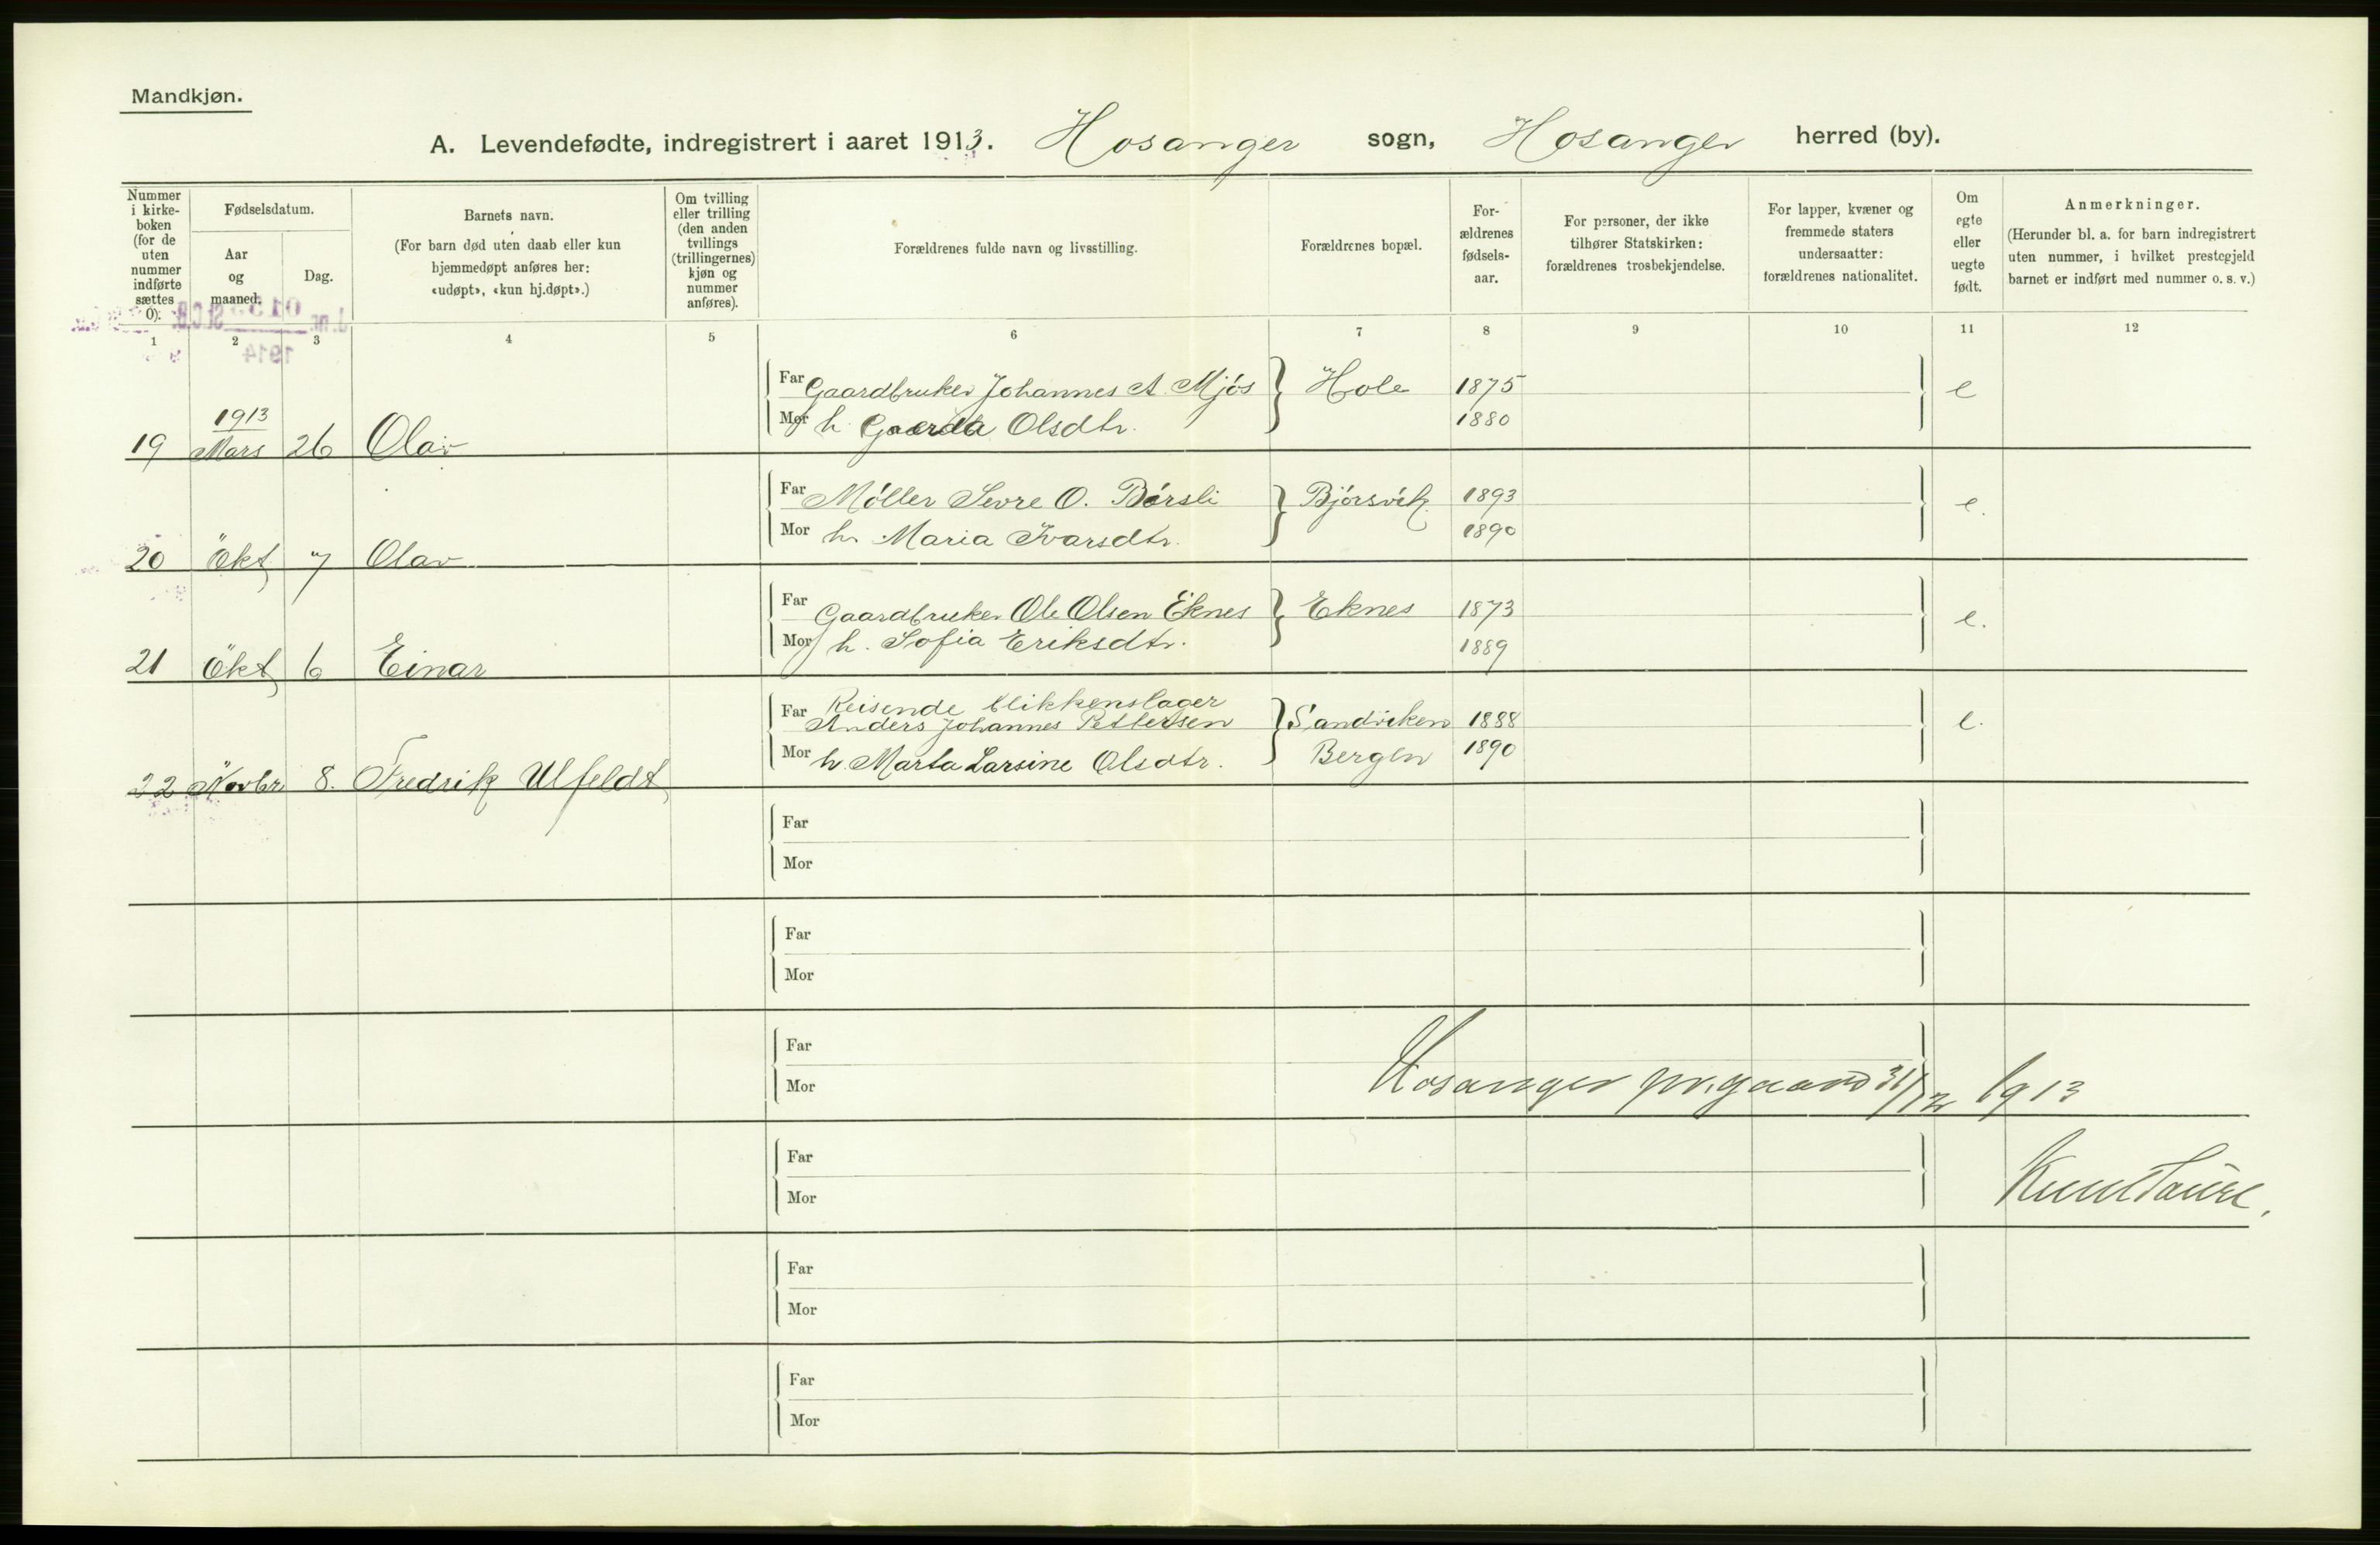 Mandkjøn.
A. Levendefødte, indregistrert i aaret 1913. Hosanger sogn, Hosanger herred (by).
Nummer i kirke-boken (for de uten nummer indførte sættes 0).
Fødselsdatum.
Aar og maaned.
Dag.
Barnets navn.
(For barn død uten daab eller kun hjemmedøpt anføres her: «udøpt», «kun hj.døpt».)
Om tvilling eller trilling (den anden tvillings (trillingernes) kjøn og nummer anføres).
Forældrenes fulde navn og livsstilling.
Forældrenes bopæl.
For-ældrenes fødsels-aar.
For personer, der ikke tilhører Statskirken: forældrenes trosbekjendelse.
For lapper, kvæner og fremmede staters undersaatter: forældrenes nationalitet.
Om egte eller uegte født.
Anmerkninger.
(Herunder bl. a. for barn indregistrert uten nummer, i hvilket prestegjeld barnet er indført med nummer o. s. v.)
1 2 3 4 5 6 7 8 9 10 11 12
1914
Far Gaardbruker Johannes A. Mjøs Hole 1875 e
1913
Mor h. Olsdtr. 1880
19 Mars 26 Olav
Far Møller Sevre O. Børsli Bjørsvik 1893 e.
Mor h. Maria Ivarsdtr. 1890
20 Okt 7 Olav
Far Gaardbruker Ole Olsen Eknes Eknes 1873 e.
Mor h. Sofia Eriksdtr. 1889
21 Okt 6 Einar
Reisende blikkenslager
Far Anders Johannes Pettersen Sandviken 1888 e.
Mor h. Marta Larsine Olsdtr. Bergen 1890
22 Novbr 8. Fredrik Ulfeldt
Far
Mor
Far
Mor
Far
Hosanger pr.gaard 31/12 1913
Mor
Far
Mor
Far
Mor
Far
Mor